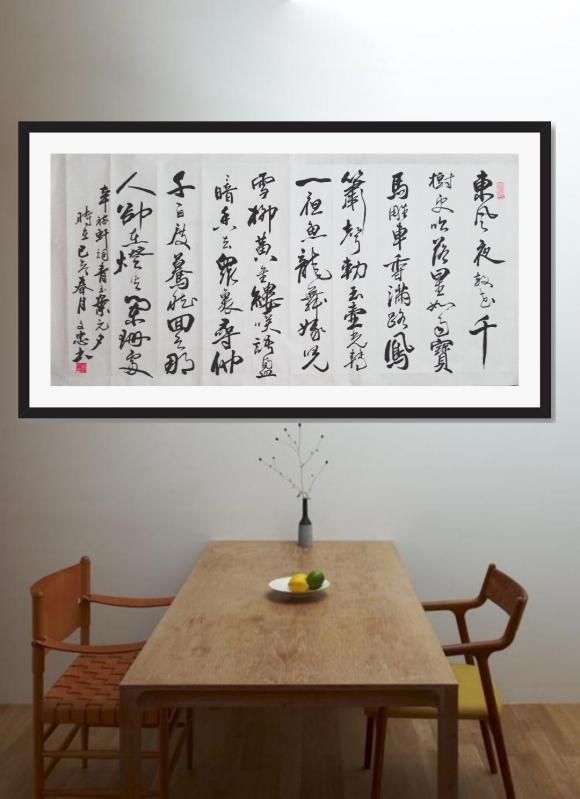 東風夜放花千
樹更吹落星如雨寶
馬雕車香滿路鳳
簫聲動玉壺光轉
一夜魚龍舞蛾兒
雪柳黃金縷笑語盈
暗香去衆裏尋他
千百度驀然回首那
人卻在燈火闌珊處
辛稼軒詞青玉案元夕
時在己亥春月文忠書